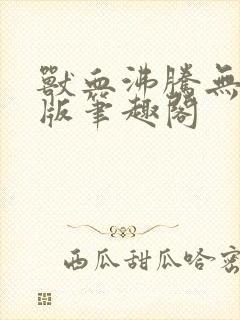 獸血沸騰無
版筆趣閣
西瓜甜瓜哈密